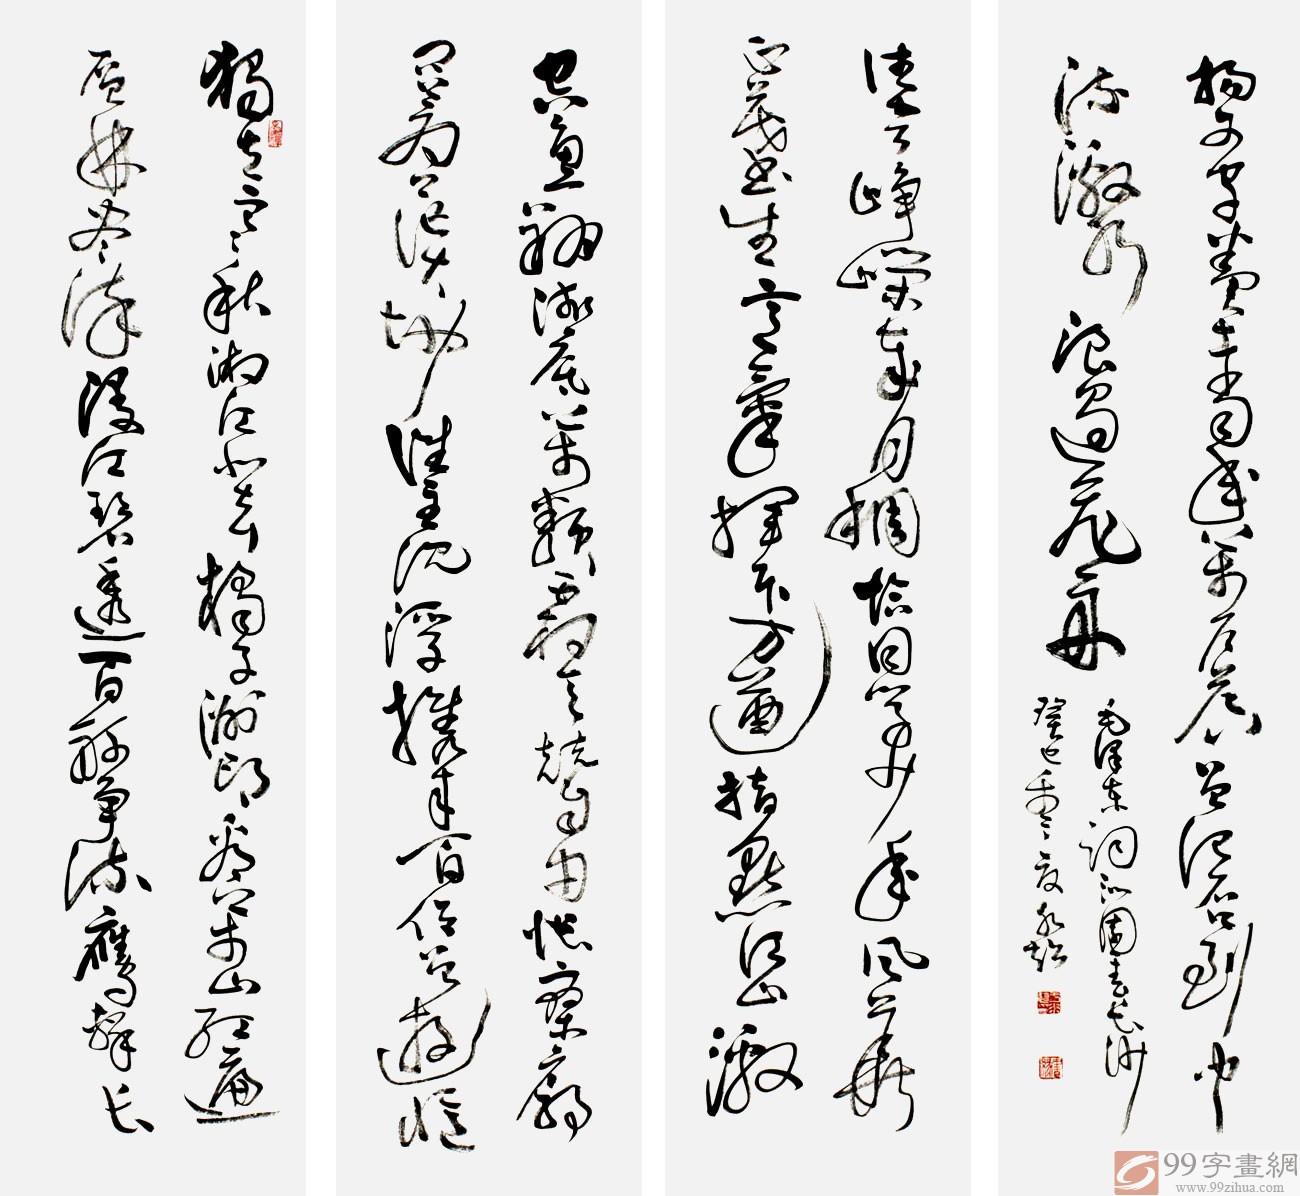 獨立寒秋湘江北去橘子洲頭看萬山紅遍
层林尽染漫江碧透百舸争流鷹擊長
空魚翔淺底萬類霜天競自由悵寥廓
問蒼茫大地誰主沉浮攜來百侣曾遊憶
往昔崢嶸歲月稠恰同學少年風華
正茂書生意氣揮斥方遒指點江山激
揚文字糞土當年萬户侯曾記否到中
流激水浪遏飛舟
毛澤東詞沁園春長沙
癸巳季夏
99字畫網
www.99zihua.com